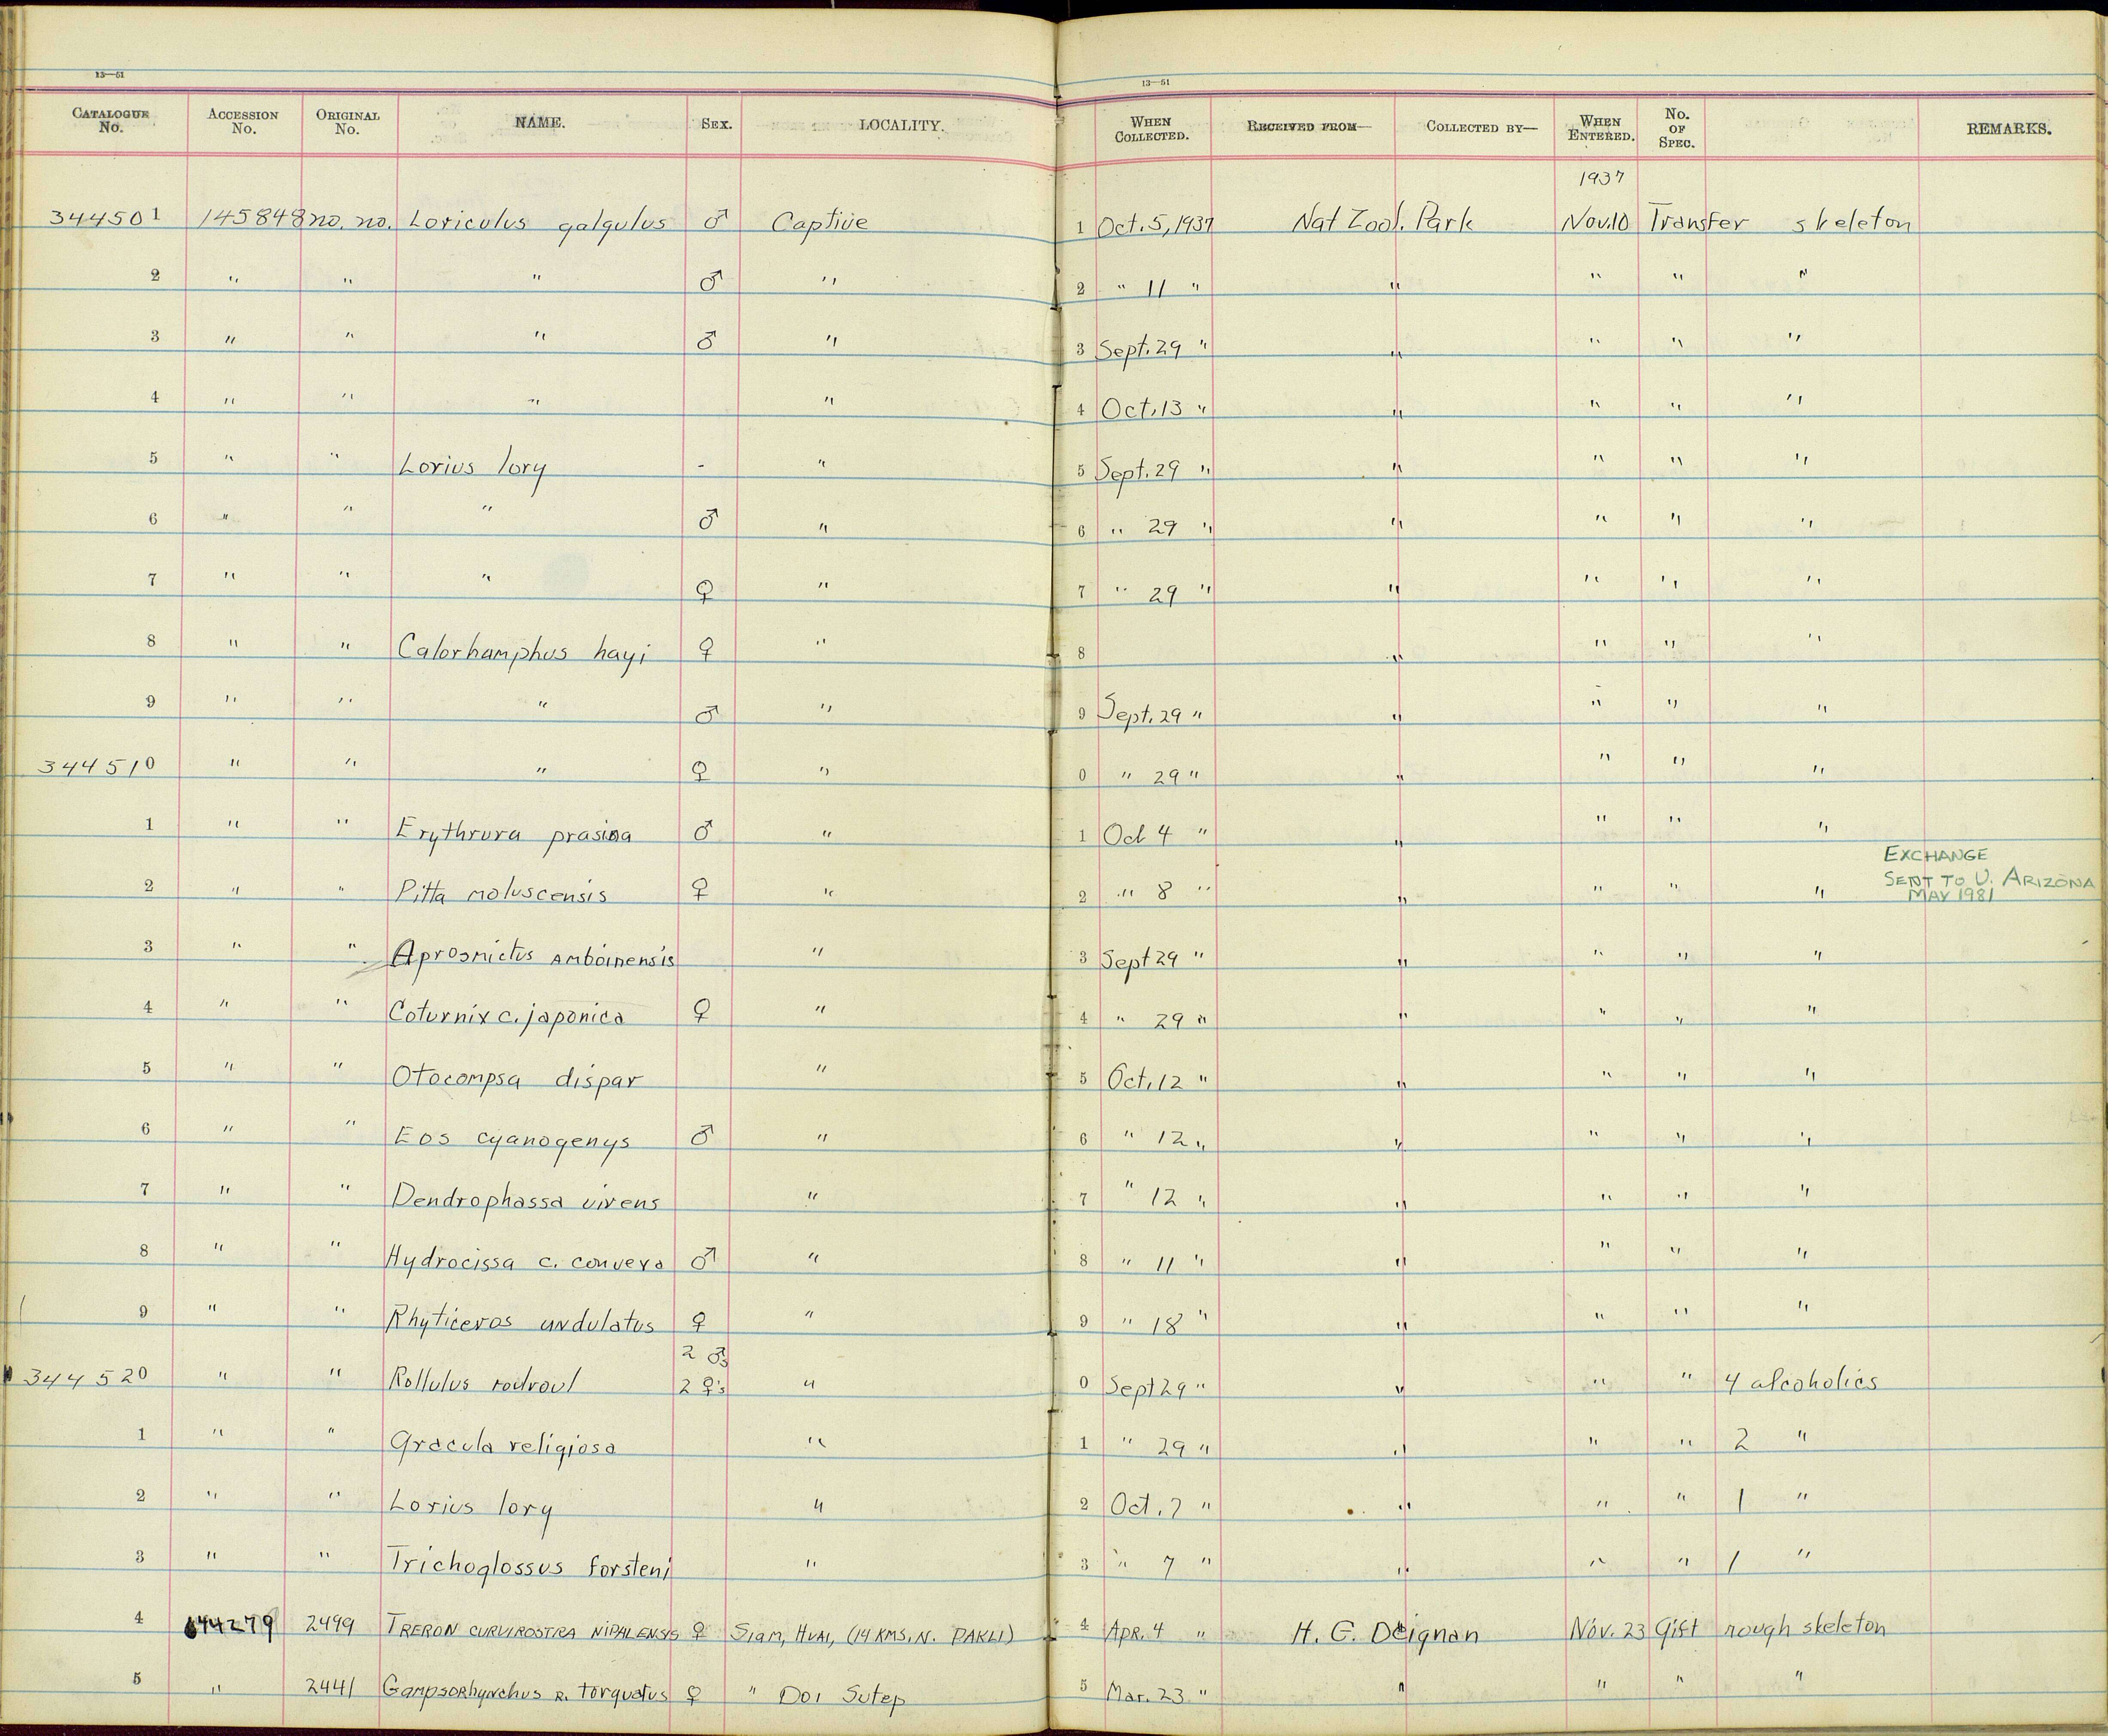 13—51 13—51
CATALOGUE No. ACCESSION No. ORIGINAL No. NAME. SEX. LOCALITY. WHEN COLLECTED. RECEIVED FROM— COLLECTED BY— WHEN ENTERED. No. OF SPEC. REMARKS.
1937
344501 145848 no. no. Loriculus galgulus ♂ Captive 1 Oct. 5, 1937 Nat Zool. Park Nov. 10 Transfer skeleton
2 " " " ♂ " 2 " 11 " " " " "
3 " " " ♂ " 3 Sept. 29 " " " " "
4 " " " " 4 Oct. 13 " " " " "
5 " " Lorius lory - " 5 Sept. 29 " " " " "
6 " " " ♂ " 6 " 29 " " " " "
7 " " " ♀ " 7 " 29 " " " " "
8 " " Calorhamphus hayi ♀ " 8 " " " "
9 " " " ♂ " 9 Sept. 29 " " " " "
344510 " " " ♀ " 0 " 29 " " " " "
1 " " Erythrura prasina ♂ " 1 Oct 4 " " " " "
EXCHANGE
SENT TO U. ARIZONA
MAY 1981
2 " " Pitta moluscensis ♀ " 2 " 8 " " " " "
3 " " Aprosmictus amboinensis " 3 Sept 29 " " " " "
4 " " Coturnix c. japonica ♀ " 4 " 29 " " " " "
5 " " Otocompsa dispar " 5 Oct. 12 " " " " "
6 " " Eos cyanogenys ♂ " 6 " 12 " " " " "
7 " " Dendrophassa vivens " 7 " 12 " " " " "
8 " " Hydrocissa c. convexa ♂ " 8 " 11 " " " " "
9 " " Rhyticeros undulatus ♀ " 9 " 18 " " " " "
2 ♂s
344520 " " Rollulus roulroul 2 ♀'s " 0 Sept 29 " " " " 4 alcoholics
1 " " Gracula religiosa " 1 " 29 " " " " 2 "
2 " " Lorius lory " 2 Oct. 7 " " " " 1 "
3 " " Trichoglossus forsteni " 3 " 7 " " " " 1 "
4 144279 2499 TRERON CURVIROSTRA NIPALENSIS ♀ Siam, HUAI, (14 KMS. N. PAKLI) 4 APR. 4 " H. G. Deignan Nov. 23 Gift rough skeleton
5 " 2441 Gampsorhynchus R. torquatus ♀ " DOI Sutep 5 Mar. 23 " " " " "